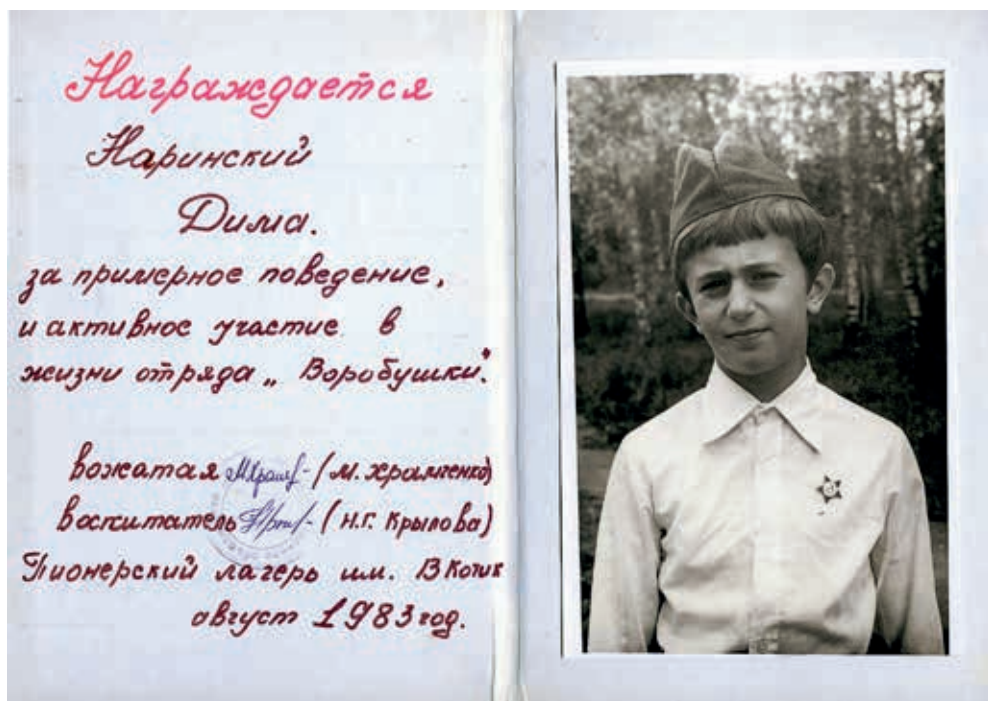 Награждается
Наринский
Дима.
за примерное поведение,
и активное участие в
жизни отряда „Воробушки".
вожатая (М. Храмченко)
воспитатель (Н.Г. Крылова)
Пионерский лагерь им. В Котик
август 1983 год.